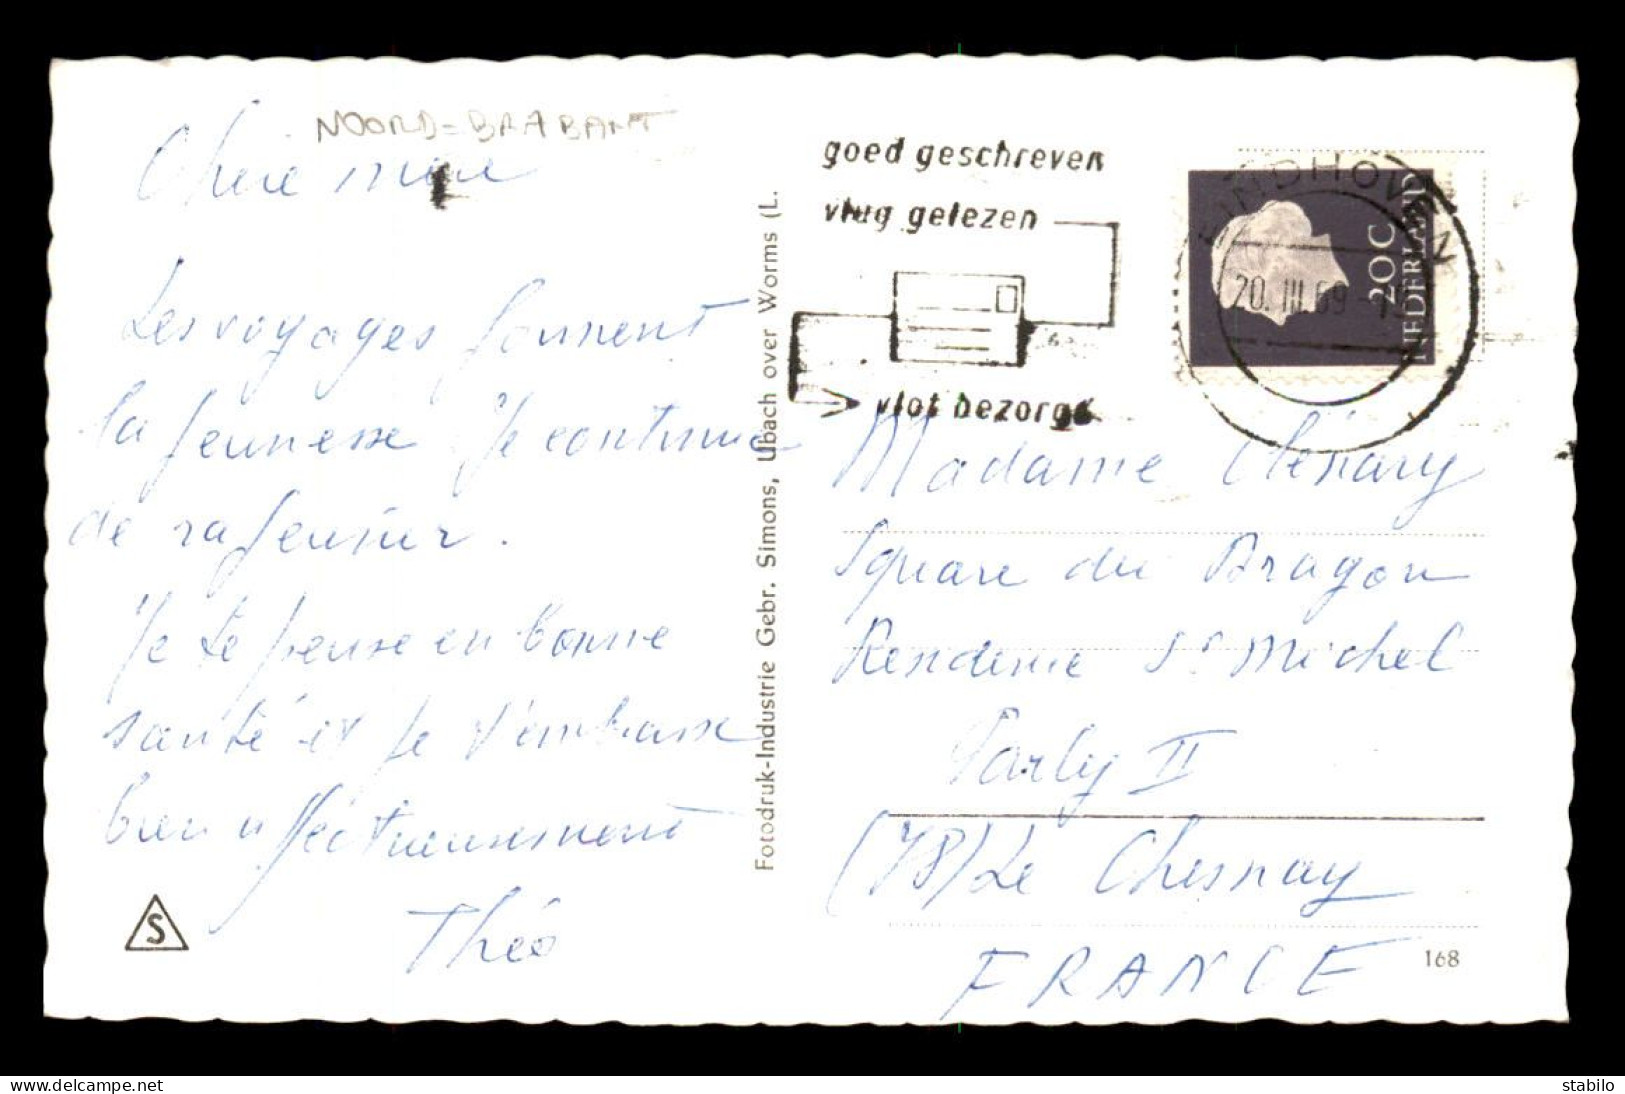 NOORD-BRABANT
Chère mine
Les voyages forment
la jeunesse. Je continue
de rajeunir.
Je te pense en bonne
santé et je t'embrasse
bien affectueusement
Théo
S
Fotodruk-Industrie Gebr. Simons, Ubach over Worms (L.
goed geschreven
vlug gelezen
vlot bezorgd
EINDHOVEN
20.III.69
20C
NEDERLAND
Madame Clénary
Square du Dragon
Residence St Michel
Parly II
(78) Le Chesnay
FRANCE
168
delcampe.net
stabilo